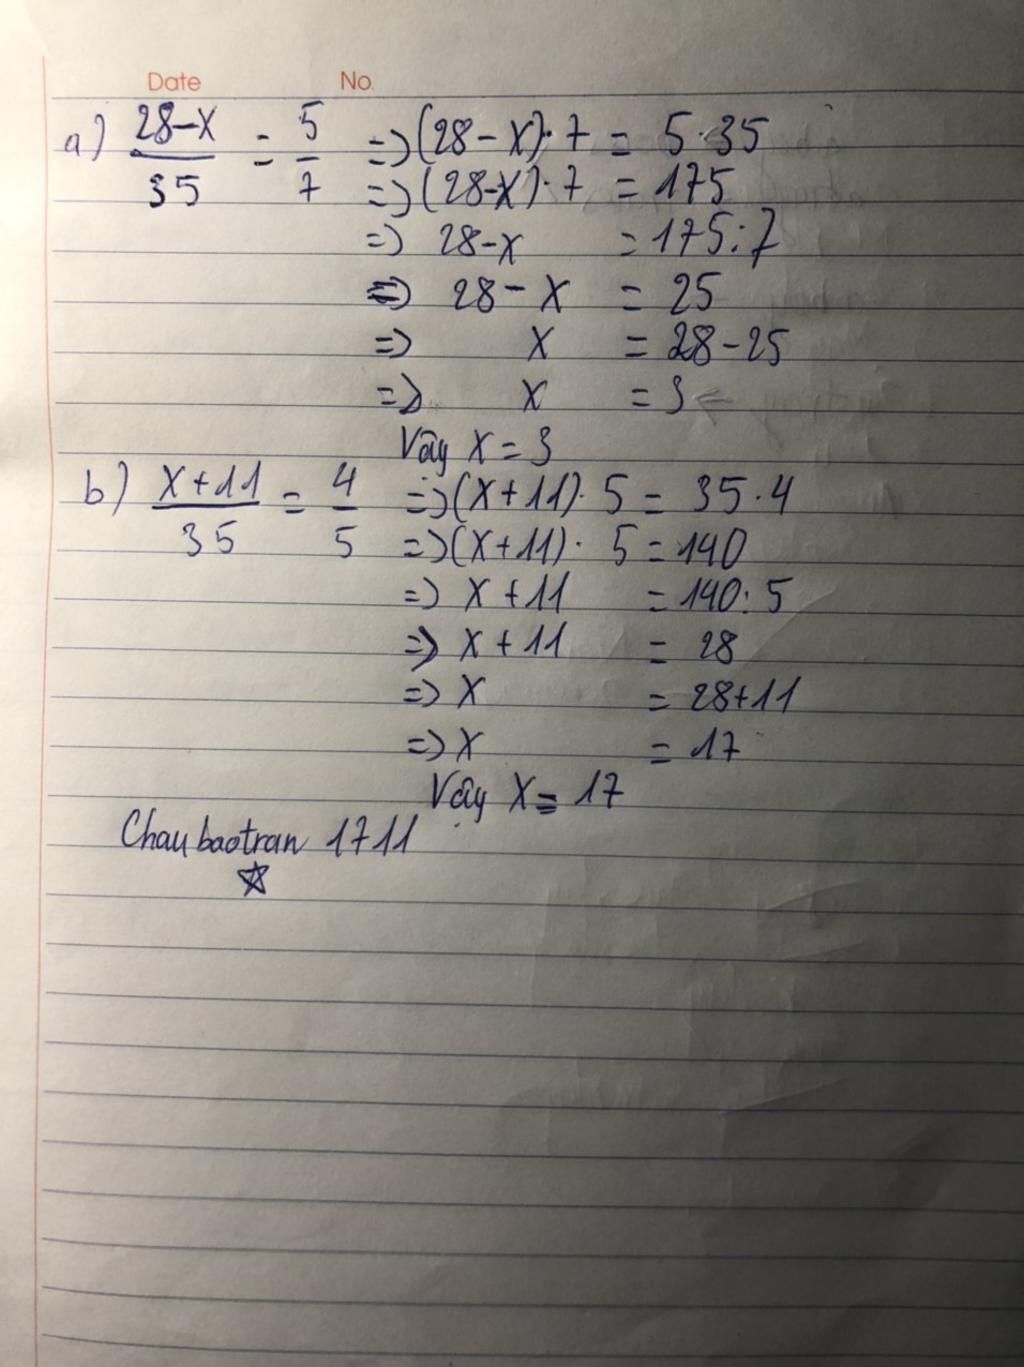 Date No.
a) 28-x/35 = 5/7 => (28-x).7 = 5.35
=> (28-x).7 = 175
=> 28-x = 175:7
=> 28-x = 25
=> x = 28-25
=> x = 3
Vậy x = 3
b) x+11/35 = 4/5 => (x+11).5 = 35.4
=> (x+11).5 = 140
=> x+11 = 140:5
=> x+11 = 28
=> x = 28+11
=> x = 17
Vậy x = 17
Chaubaotran 1711